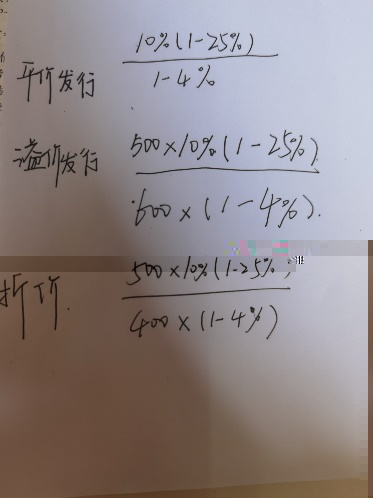 平价发行 10%(1-25%) / 1-4%
溢价发行 500×10%(1-25%) / 600×(1-4%).
折价. 500×10%(1-25%) / 400×(1-4%)